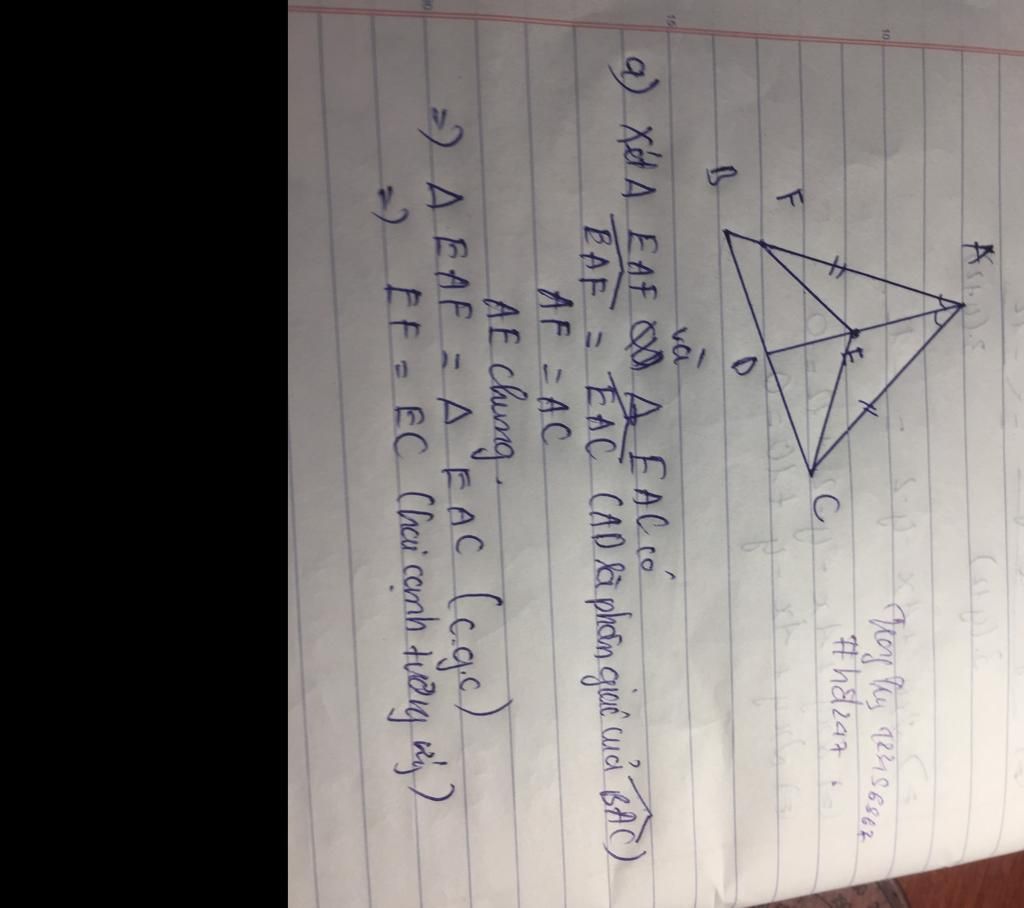 #hd247
A
F
E
B
D
C
và
a) Xét Δ EAF Δ EAC có
BAF = EAC (AD là phân giác của BAC)
AF = AC
AE chung.
=) Δ EAF = Δ EAC (c.g.c)
=) EF = EC (hai cạnh tương ứng)